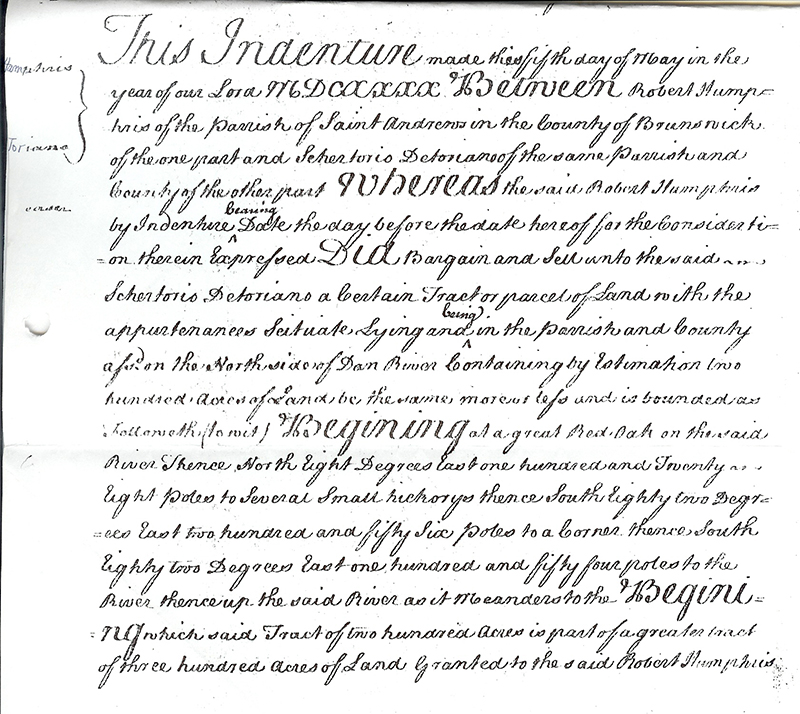 Humphris
Toriano
This Indenture made this fifth day of May in the
year of our Lord MDCCXXXX Between Robert Hump=
hris of the Parrish of Saint Andrews in the County of Brunswick
of the one part and Schertorio Detoriano of the same Parrish and
County of the other part Whereas the said Robert Humphris
by Indenture ^bearing Date the day before the date hereof for the Considerti=
=on therein Expressed Did Bargain and Sell unto the said
Schertorio Detoriano a Certain Tract or parcel of Land with the
appurtenances Scituate Lying and ^being in the Parrish and County
afsd. on the North side of Dan River Containing by Estimation two
hundred Acres of Land be the same more or less and is bounded as
Followeth (to wit) Begining at a great Red Oak on the said
River Thence North Eight Degrees East one hundred and Twenty
Eight Poles to Several Small hickorys thence South Eighty two Degr=
=ees East two hundred and fifty Six Poles to a Corner thence South
Eighty two Degrees East one hundred and fifty four poles to the
River thence up the said River as it Meanders to the Begini=
=ng which said Tract of two hundred Acres is part of a greater tract
of three hundred Acres of Land Granted to the said Robert Humphris